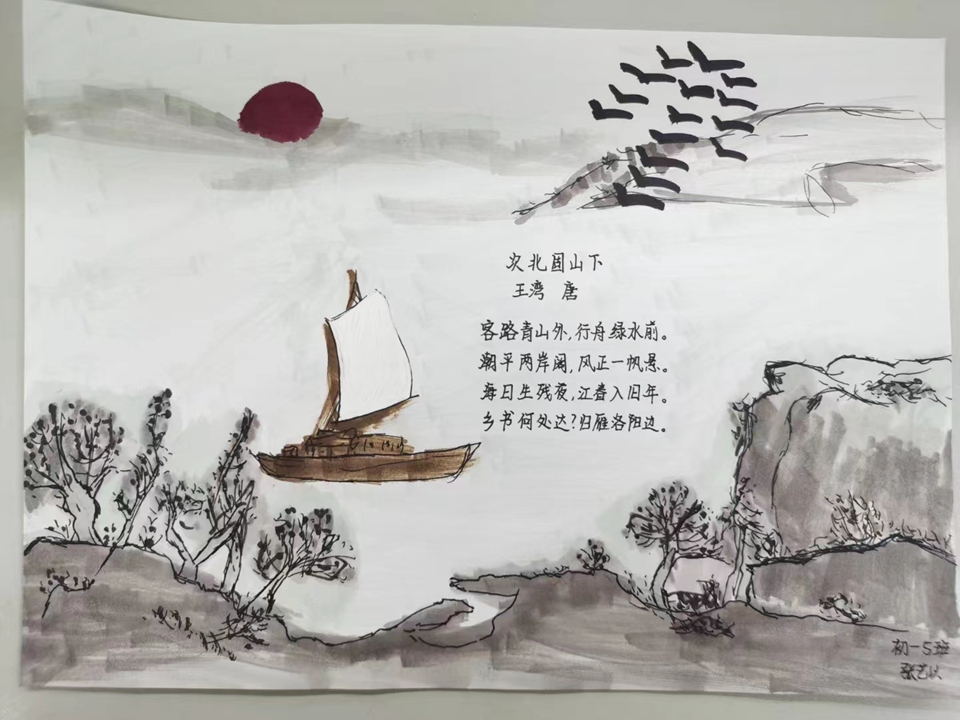 次北固山下
王湾 唐
客路青山外,行舟绿水前。
潮平两岸阔,风正一帆悬。
海日生残夜,江春入旧年。
乡书何处达?归雁洛阳边。
初一5班
张艺